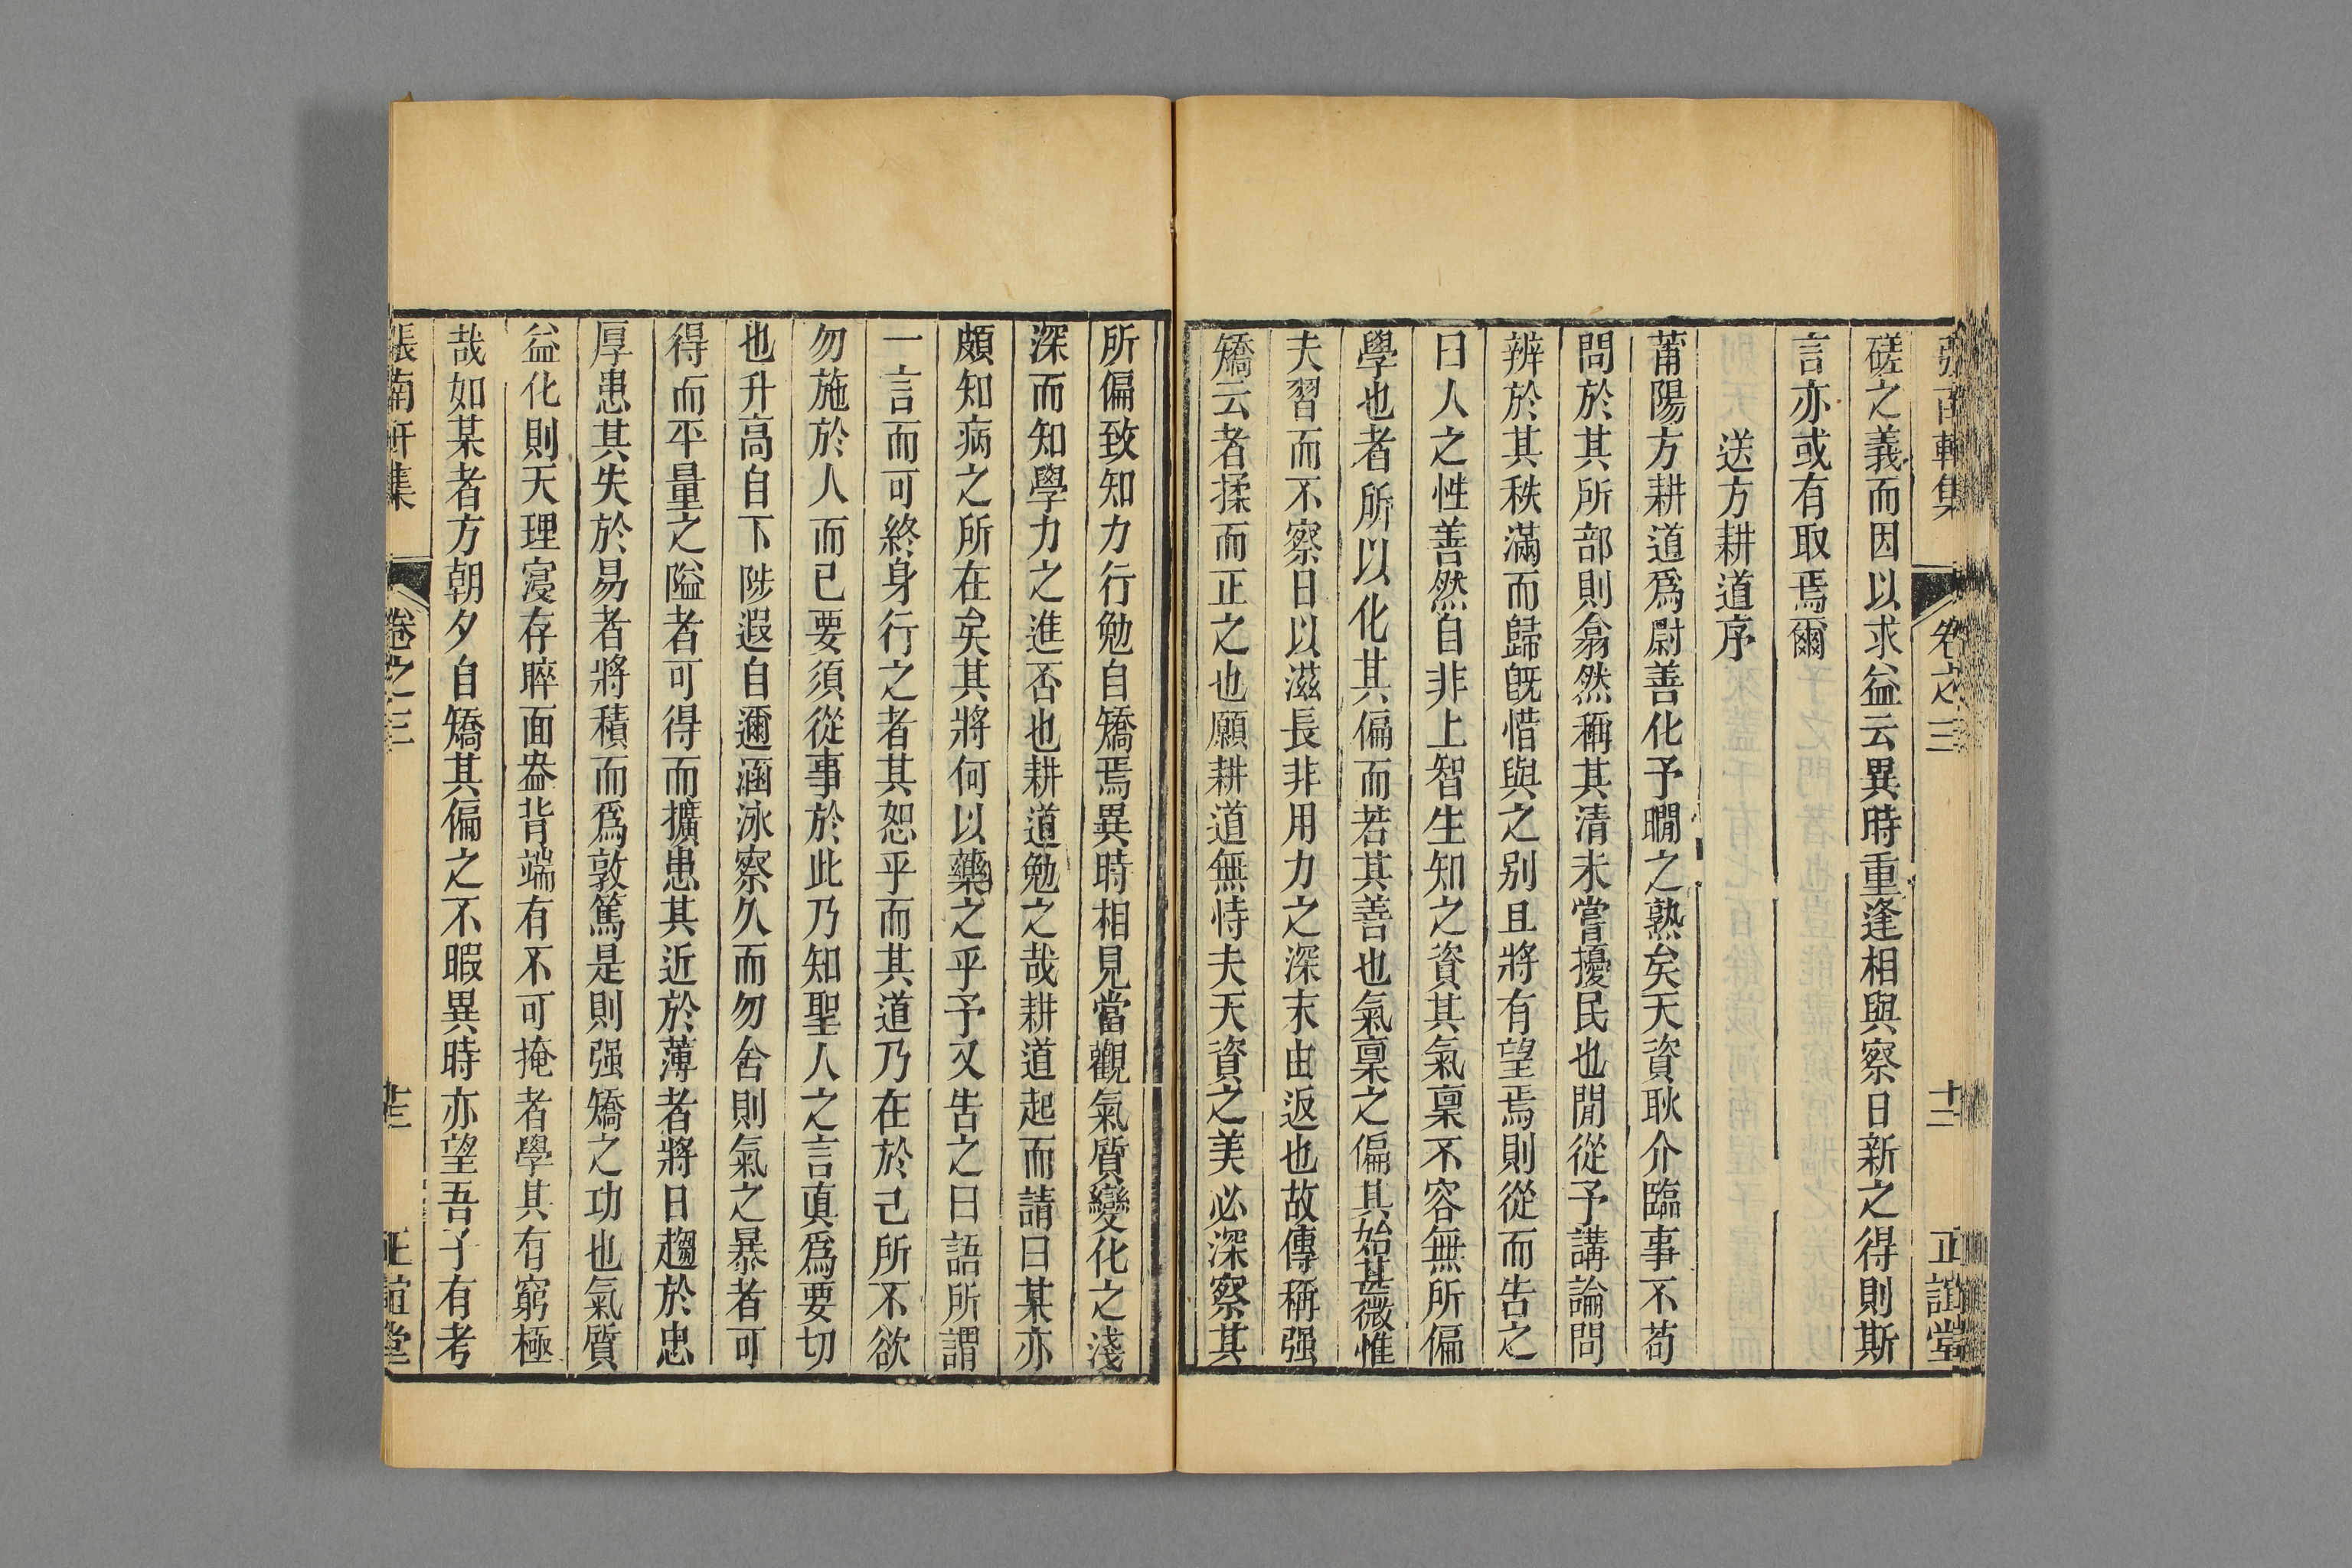 張南軒集 卷之三 十二 正誼堂
磋之義而因以求益云異時重逢相與察日新之得則斯
言亦或有取焉爾
送方耕道序
莆陽方耕道爲尉善化予瞯之熟矣天資耿介臨事不苟
問於其所部則翕然稱其清未嘗擾民也閒從予講論問
辨於其秩滿而歸旣惜與之别且將有望焉則從而告之
曰人之性善然自非上智生知之資其氣稟不容無所偏
學也者所以化其偏而若其善也氣稟之偏其始甚微惟
夫習而不察日以滋長非用力之深末由返也故傳稱强
矯云者揉而正之也願耕道無恃夫天資之美必深察其
所偏致知力行勉自矯焉異時相見當觀氣質變化之淺
深而知學力之進否也耕道勉之哉耕道起而請曰某亦
頗知病之所在矣其將何以藥之乎予又告之曰語所謂
一言而可終身行之者其恕乎而其道乃在於己所不欲
勿施於人而已要須從事於此乃知聖人之言眞爲要切
也升高自下陟遐自邇涵泳察久而勿舍則氣之暴者可
得而平量之隘者可得而擴患其近於薄者將日趨於忠
厚患其失於易者將積而爲敦篤是則强矯之功也氣質
益化則天理寖存睟面盎背端有不可掩者學其有窮極
哉如某者方朝夕自矯其偏之不暇異時亦望吾子有考
張南軒集 卷之三 十三 正誼堂